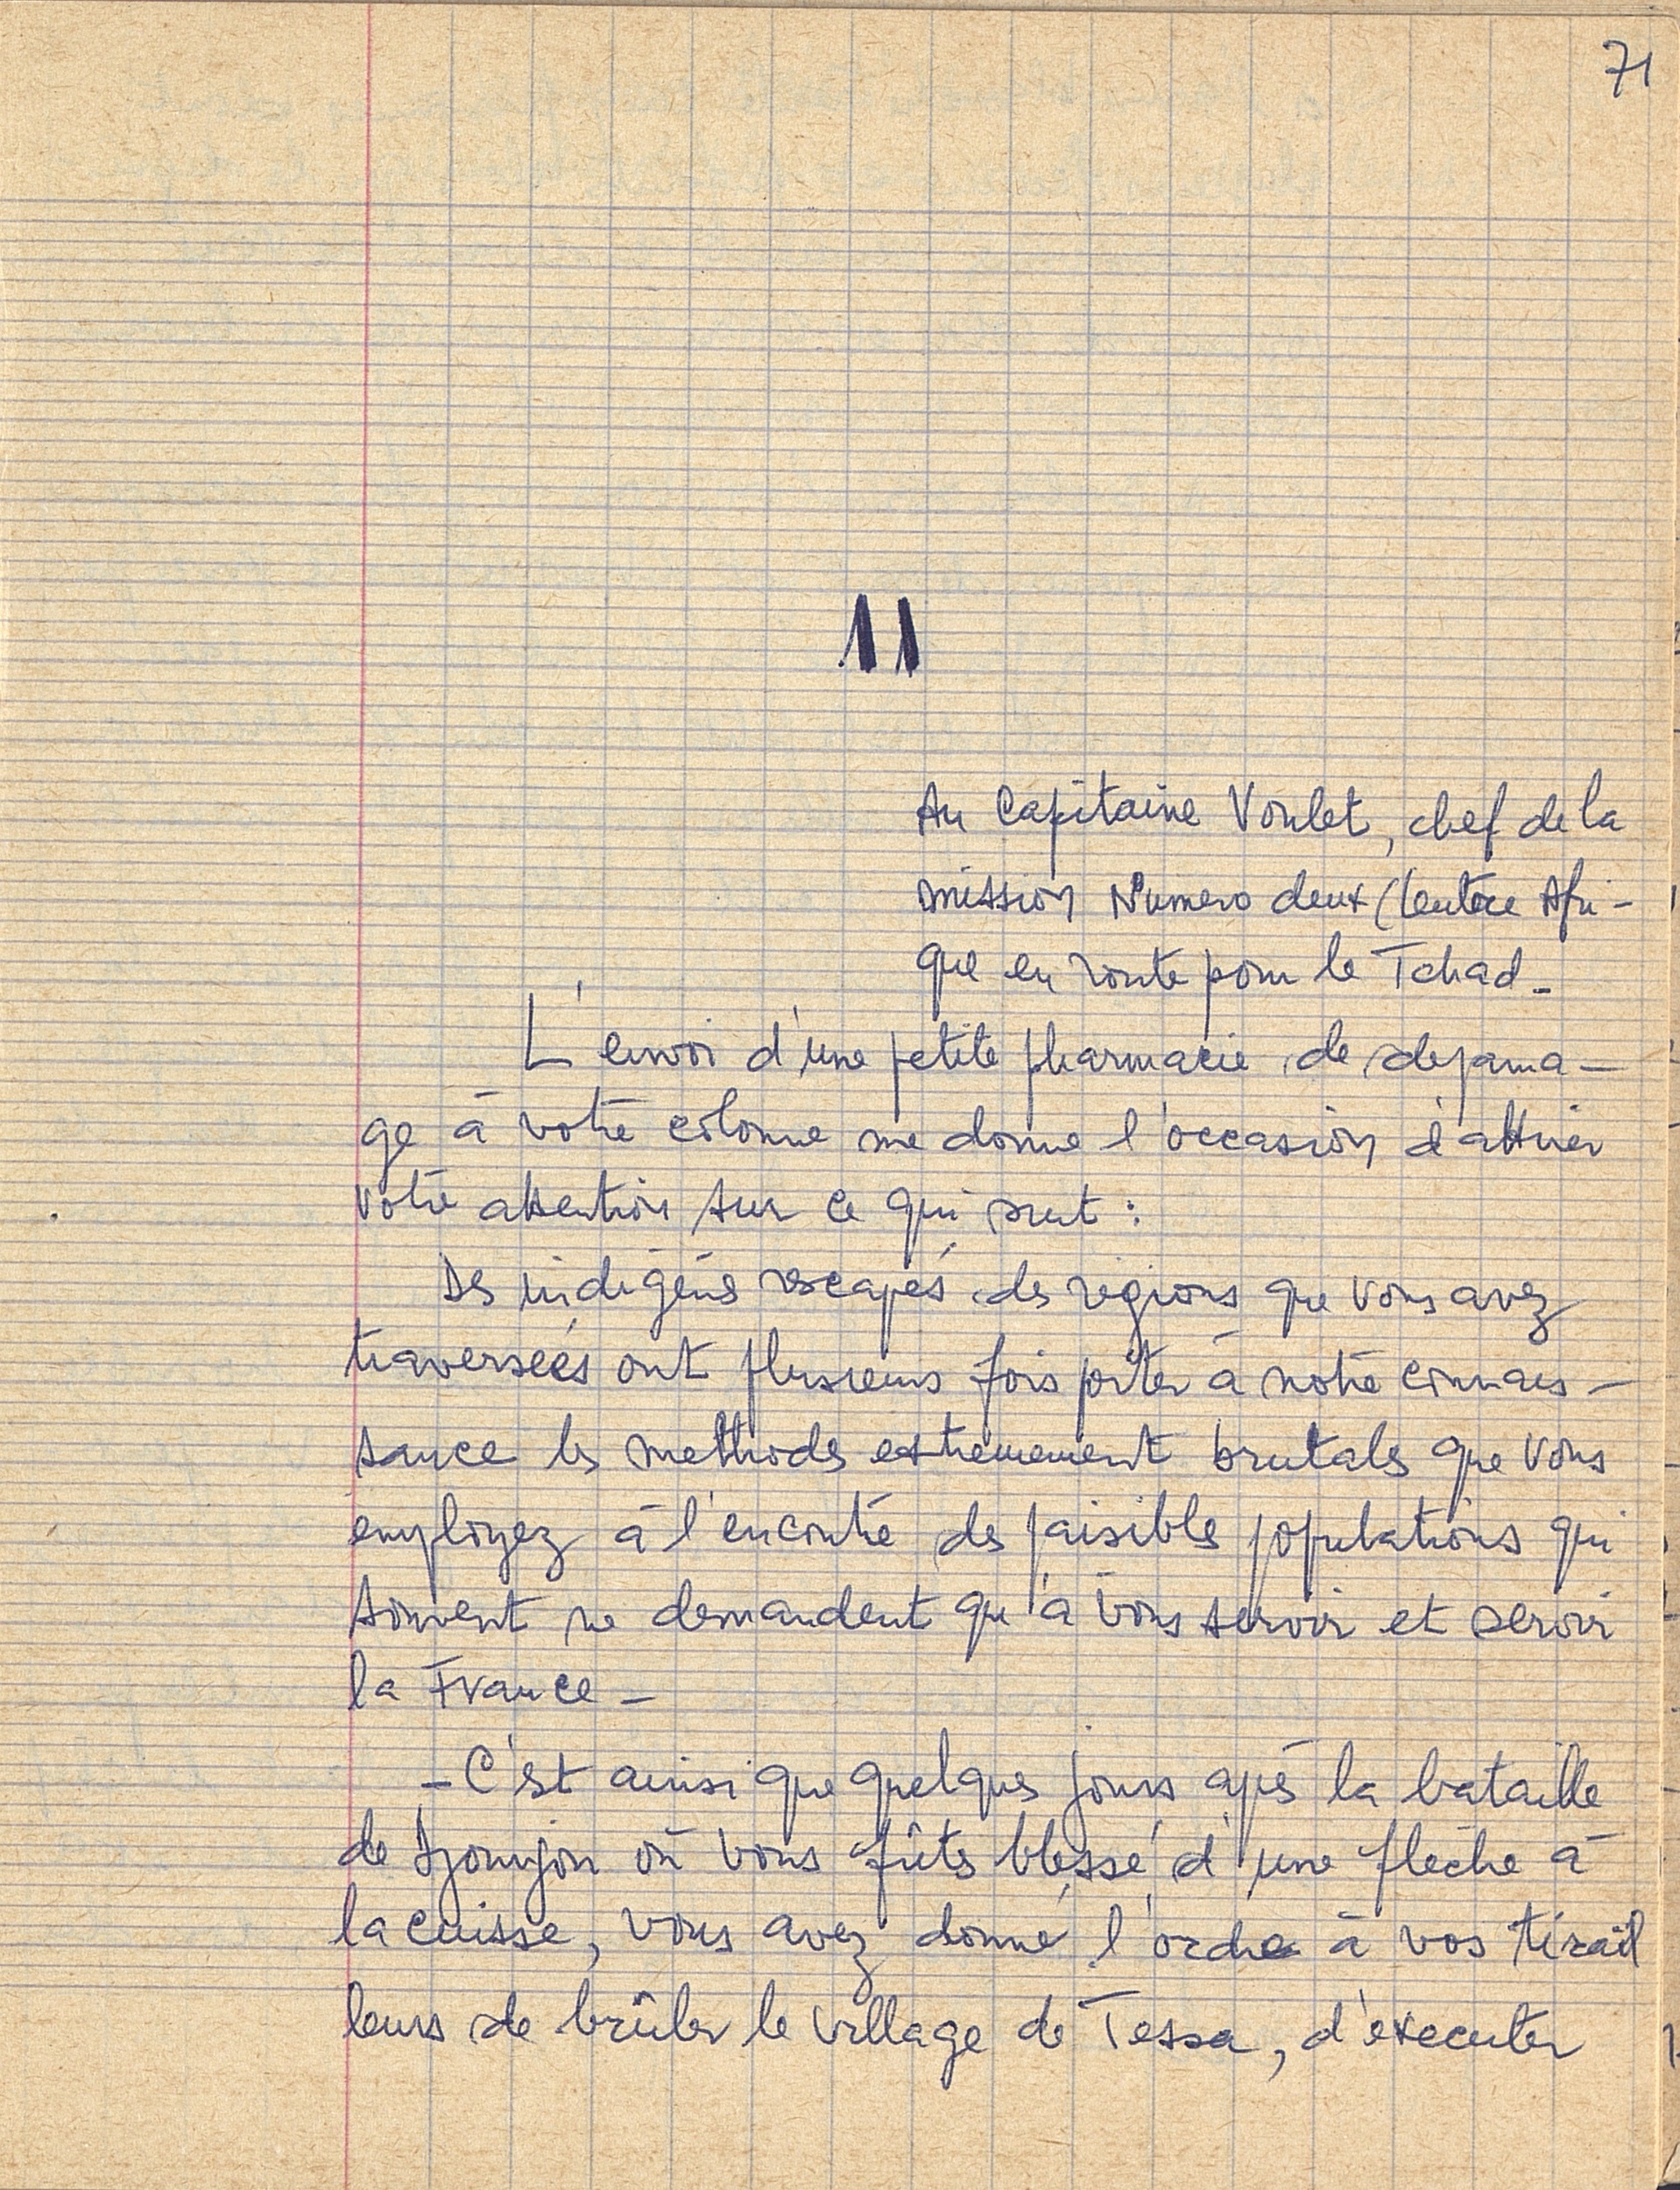 71
11
Au Capitaine Voulet, chef de la
mission Numero deux (Centre Afri-
que en route pour le Tchad_
L'envoi d'une petite pharmacie de depanna-
ge à votre colonne me donne l'occasion d'attirer
votre attention sur ce qui suit :
Des indigènes rescapés des régions que vous avez
traversées ont plusieurs fois porter à notre connais-
sance les methodes extremement brutales que vous
employez à l'encontre des paisibles populations qui
souvent ne demandent qu'à vous servir et servir
la France_
_C'est ainsi que quelques jours après la bataille
de où vous fûtes blessé d'une flèche à
la cuisse, vous avez donné l'ordre à vos tirail
leurs de brûler le village de Tessa, d'executer